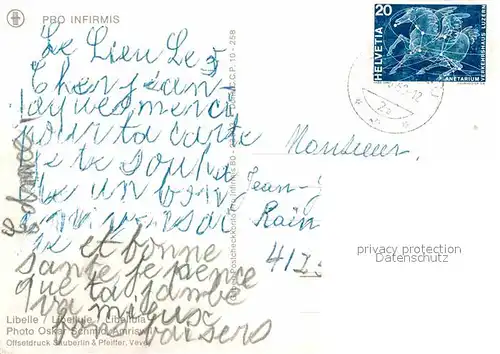 PRO INFIRMIS
Le Lieu Le 5
Cher jean-
jaques merci
pour ta carte
je te souhe
te un bon
aniversar
is et bonne
santé je pence
que ta jambe
va mieux
bons baisers
Libelle / Libellule / Libellula
Photo Oskar Schmid, Amriswil
Offsetdruck Säuberlin & Pfeiffer, Vevey
Postcheckkonto Pro Infirmis 80-
C.C.P. 10-258
20
HELVETIA
PLANETARIUM
VERKEHRSHAUS LUZERN
Monsieur
Jean-
Rain
41
privacy protection
Datenschutz